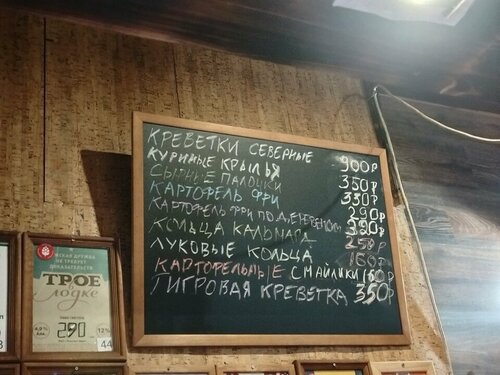 КРЕВЕТКИ СЕВЕРНЫЕ 900р
КУРИНЫЕ КРЫЛЬЯ 350р
СЫРНЫЕ ПАЛОЧКИ 350р
КАРТОФЕЛЬ ФРИ 290р
КАРТОФЕЛЬ ФРИ ПО ДЕРЕВЕНСКИ
КОЛЬЦА КАЛЬМАРА 250р
ЛУКОВЫЕ КОЛЬЦА 160р
КАРТОФЕЛЬНЫЕ СМАЙЛИКИ 160р
ТИГРОВАЯ КРЕВЕТКА 350р
МУЖСКАЯ ДРУЖБА
НЕ ТРЕБУЕТ
ДОКАЗАТЕЛЬСТВ
ТРОЕ
в лодке
4,9%
Алк.
290
12%
44